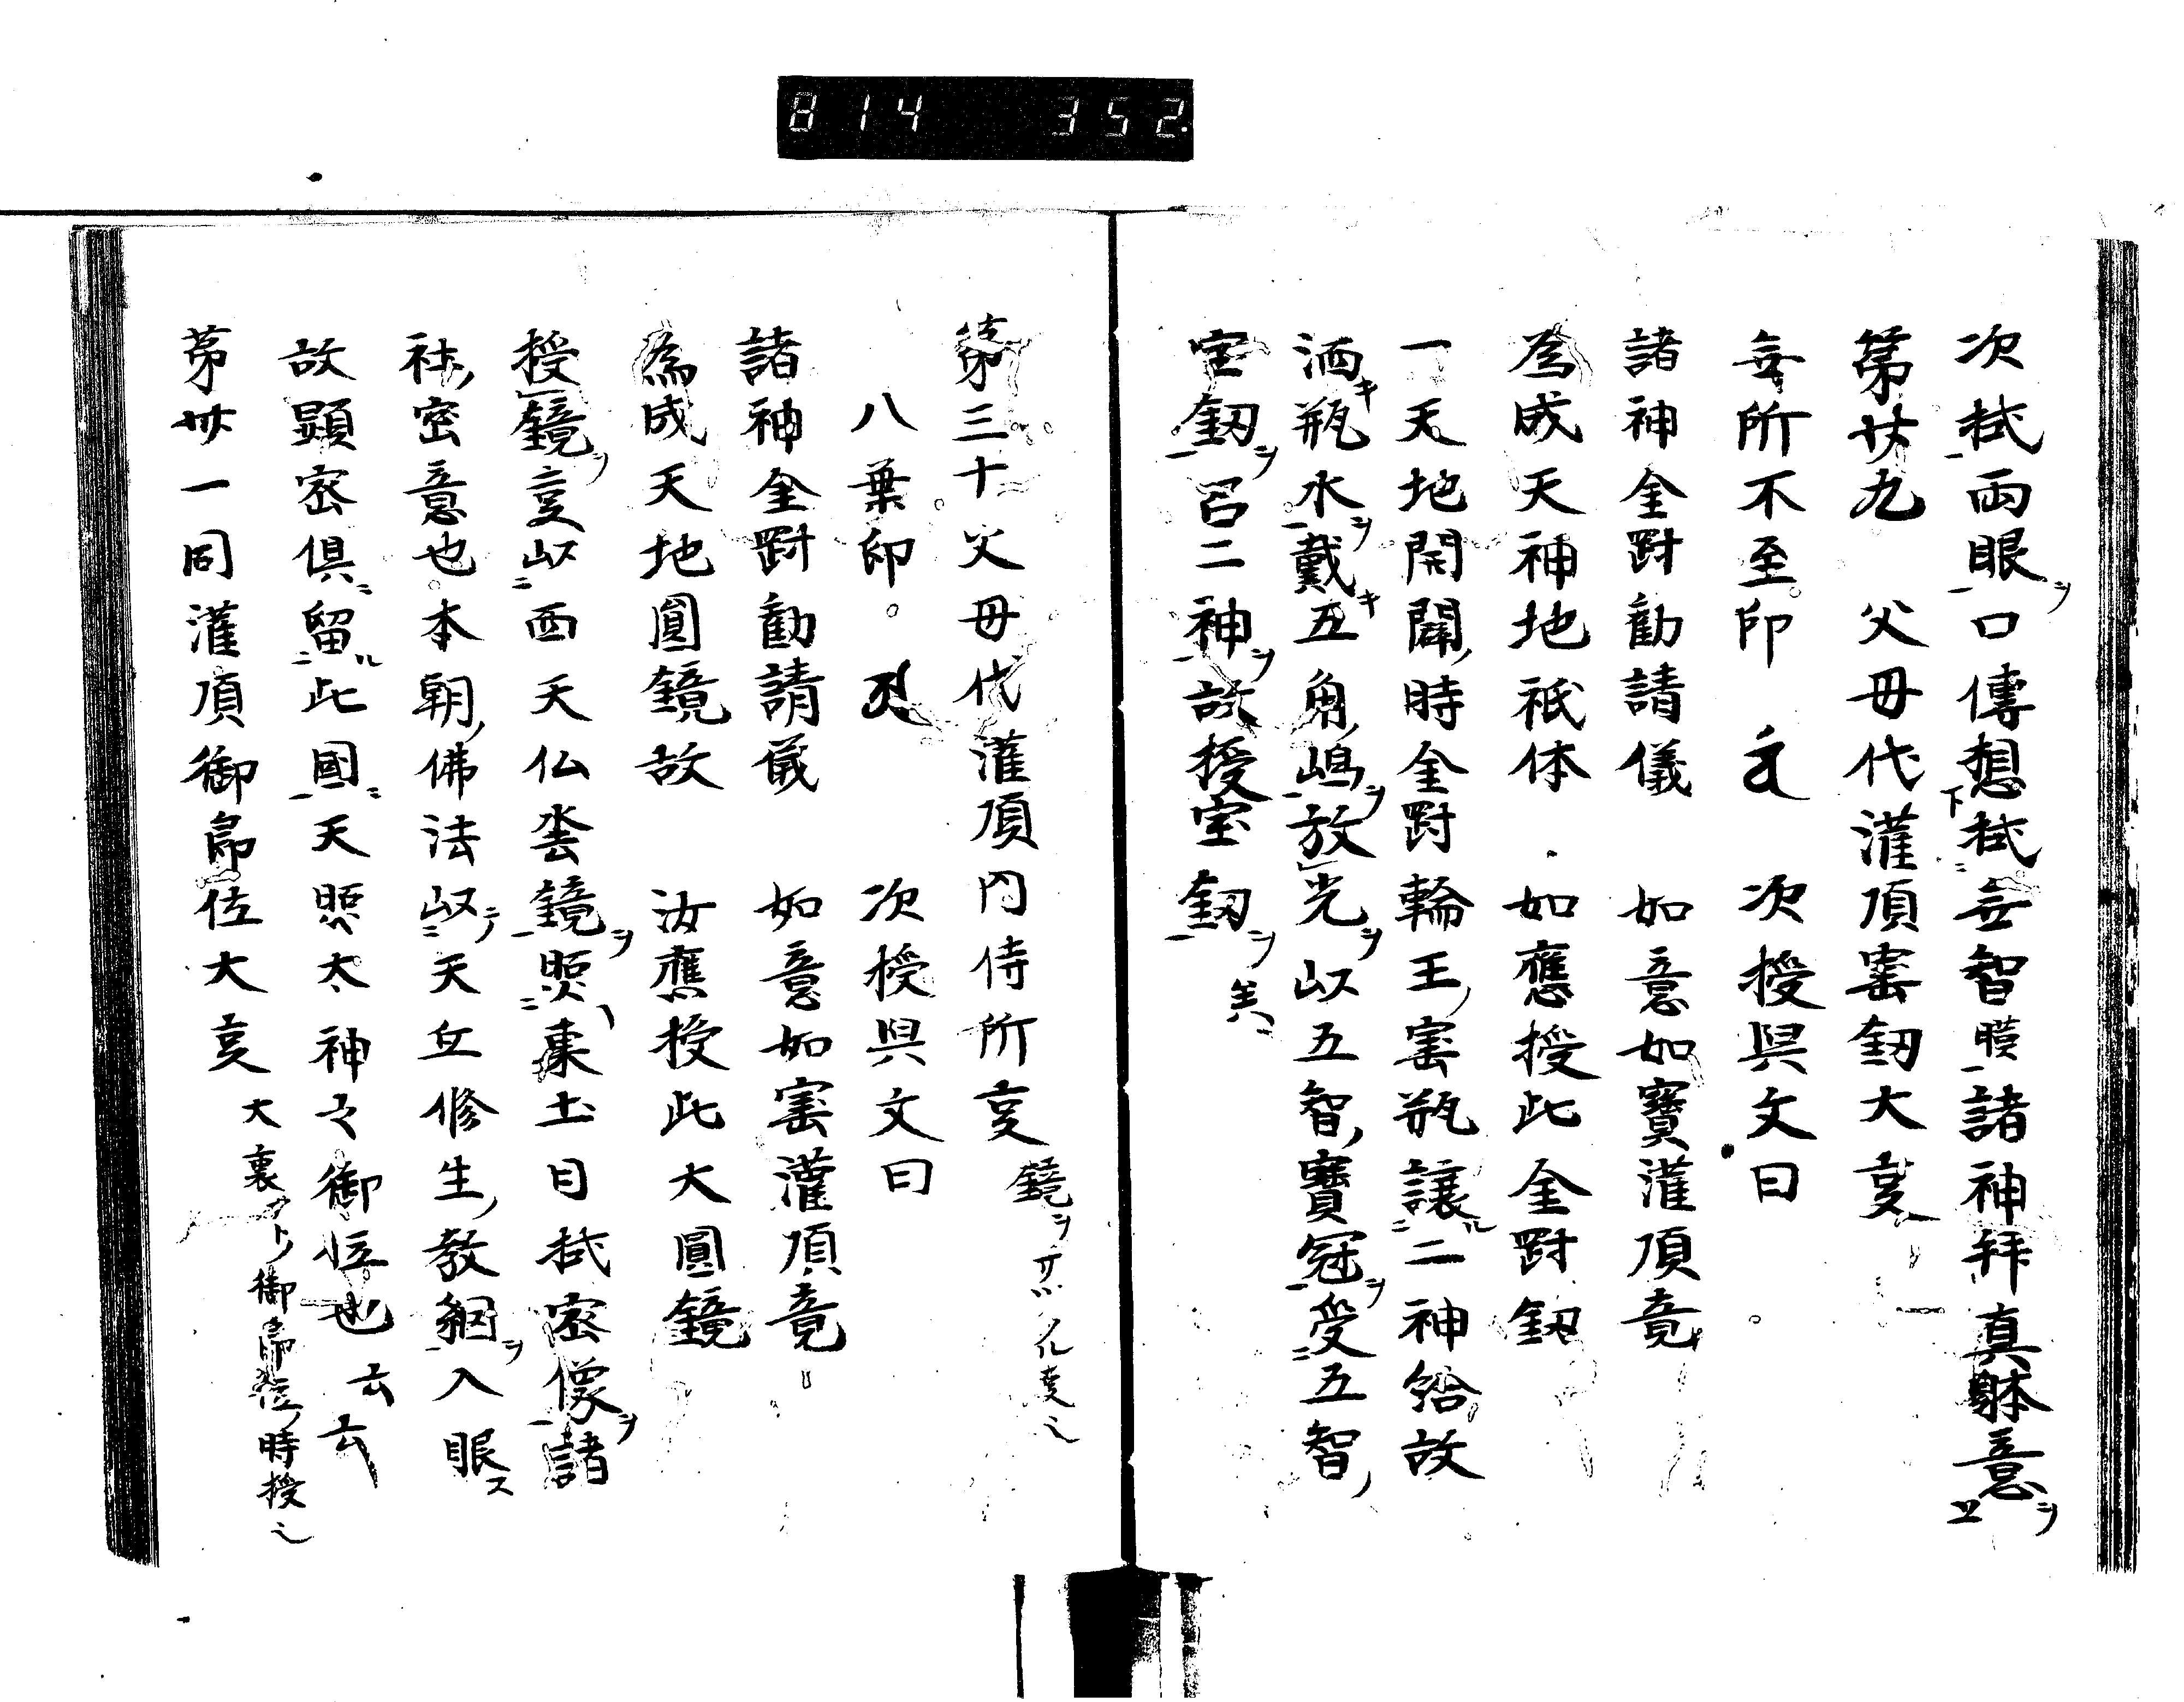 814 352
次拭両眼ヲ口傳想拭無智膜諸神拜真躰意ヲ
第廿九 父母代灌頂寳釼大事
無所不至印 次授與文曰
諸神金剛勧請儀 如意如寶灌頂竟
為成天神地祇体 如應授此金剛釼
一天地開闢時金剛輪王寳瓶譲ル二神給故
洒キ瓶水ヲ戴キ五角嶋ヲ放光ヲ以五智寶冠ヲ受五智
宝釼ヲ召二神ヲ故授宝釼ヲ矣
第三十父母代灌頂内侍所事 鏡ヲ
八葉印 次授與文曰
諸神金剛勧請儀 如意如寳灌頂竟
為成天地圓鏡故 汝應授此大圓鏡
授鏡ヲ事以ニ西天仏法鏡ヲ照東土日拭密像ヲ諸
社密意也本朝佛法以テ天丘修生教網ヲ入眼ス
故顕密倶ニ留ル此國ニ天照太神之御恠也云云
第卅一同灌頂御即位大事 大裏 御即位時授之